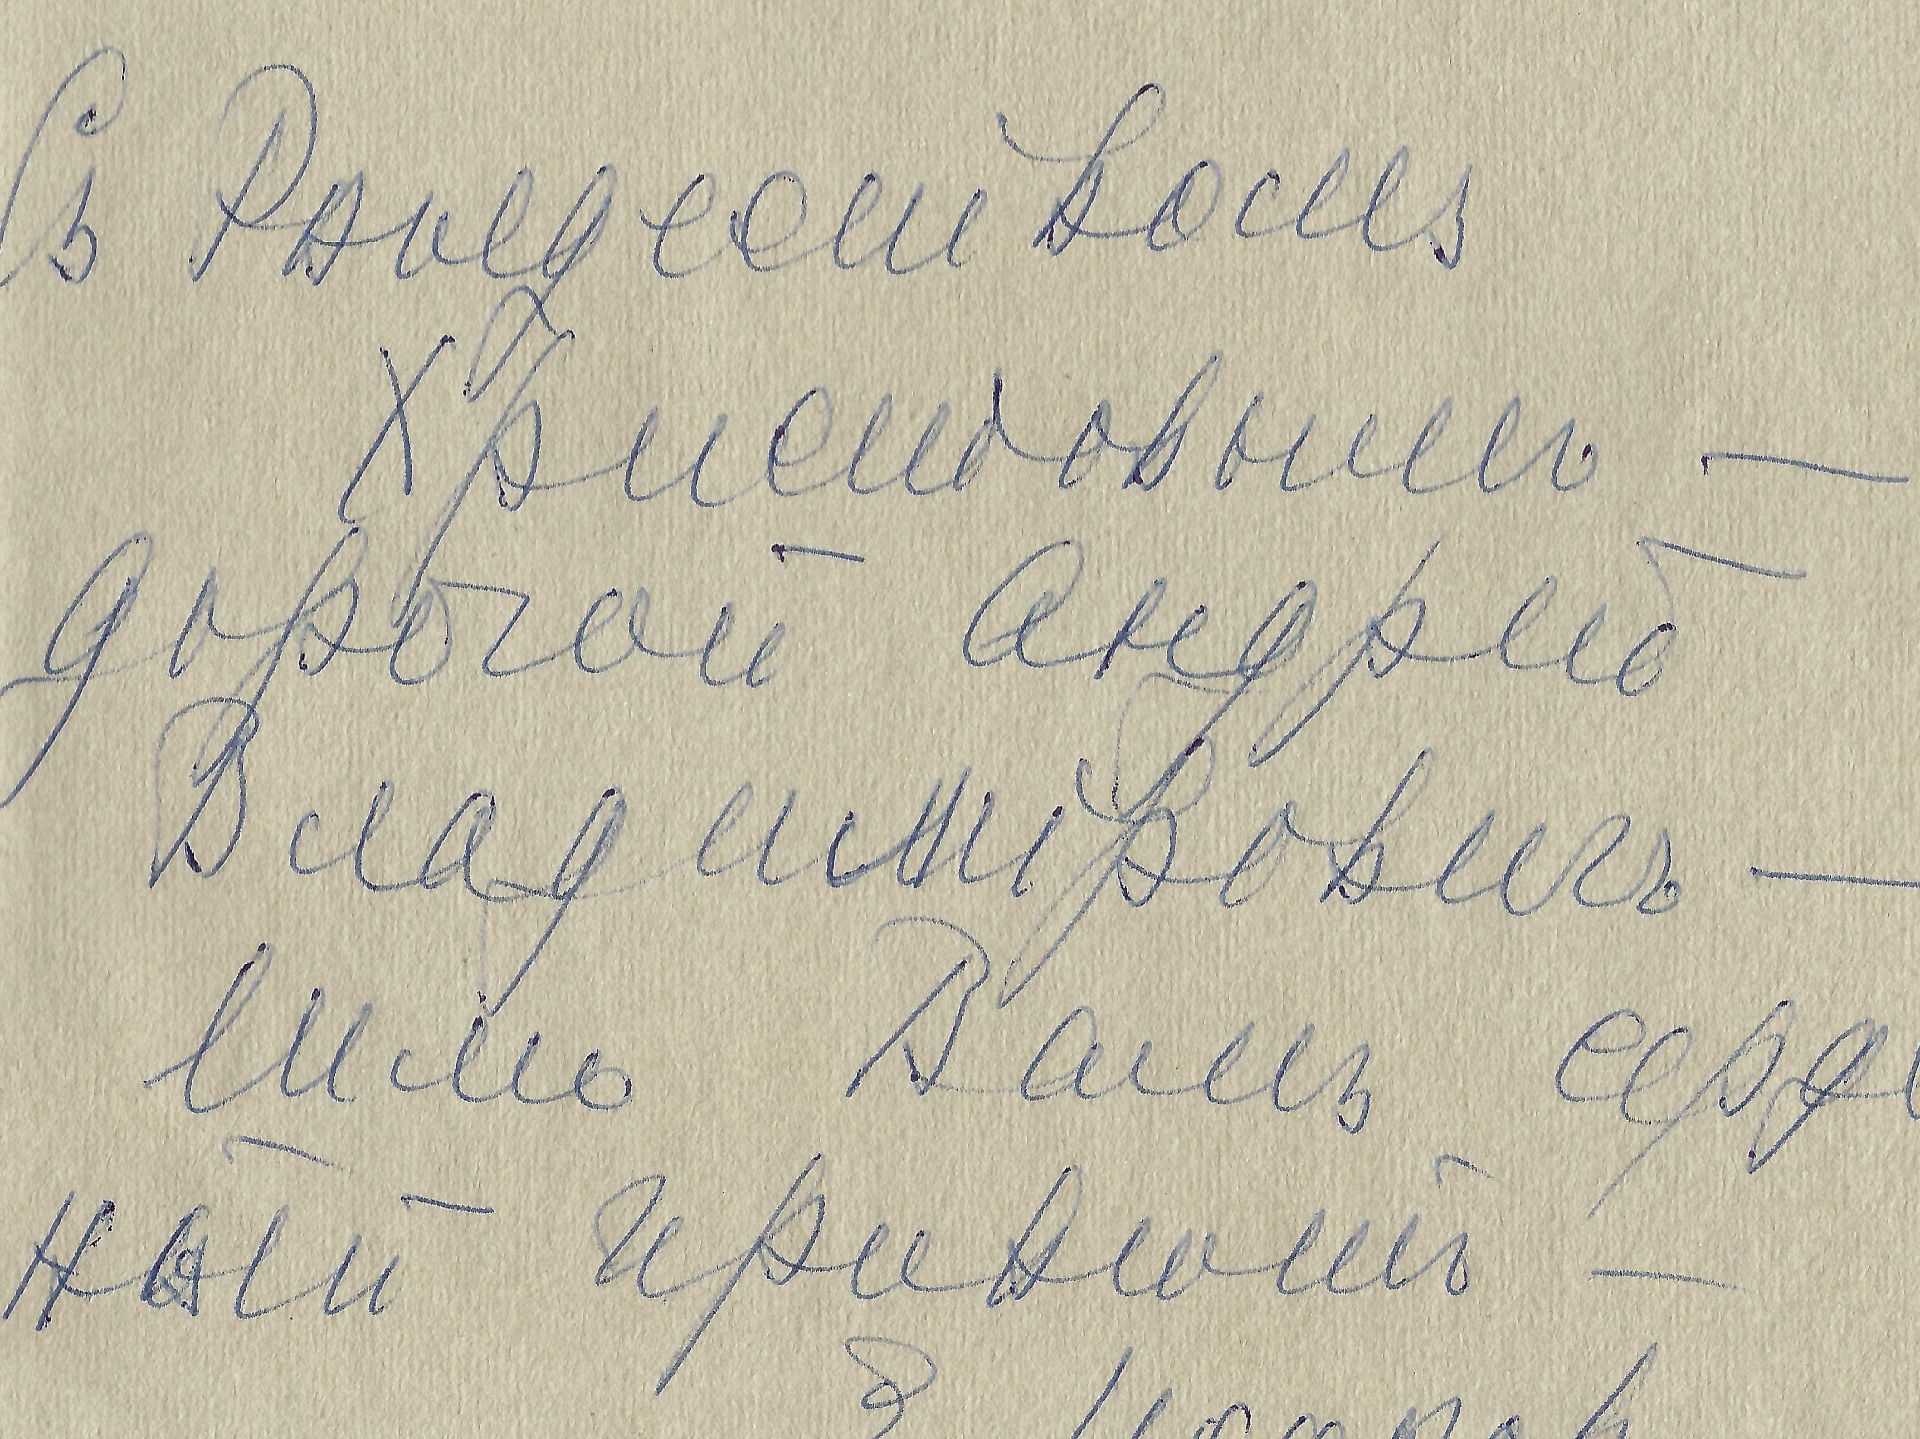 Съ Рождествомъ
Христовымъ —
дорогой Андрей
Владимiровичъ —
шлю Вамъ серд
ный привѣтъ —